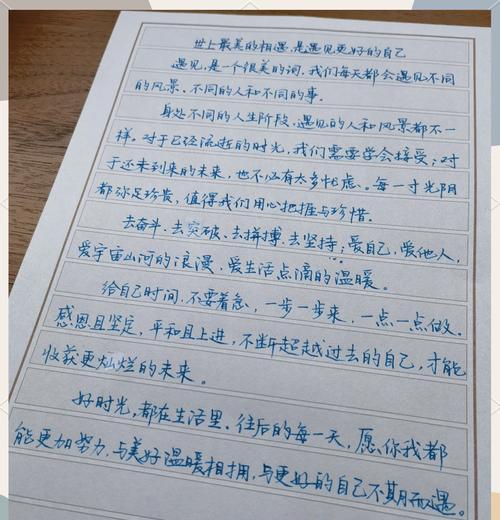 世上最美的相遇,是遇见更好的自己
遇见,是一个很美的词,我们每天都会遇见不同
的风景、不同的人和不同的事。
身处不同的人生阶段,遇见的人和风景都不一
样。对于已经流逝的时光,我们需要学会接受;对
于还未到来的未来,也不必有太多忧虑。每一寸光阴
都弥足珍贵,值得我们用心把握与珍惜。
去奋斗、去突破、去拼搏、去坚持;爱自己,爱他人,
爱宇宙山河的浪漫,爱生活点滴的温暖。
给自己时间,不要着急,一步一步来,一点一点做。
感恩且坚定,平和且上进,不断超越过去的自己,才能
收获更灿烂的未来。
好时光,都在生活里。往后的每一天,愿你我都
能更加努力,与美好温暖相拥,与更好的自己不期而遇。